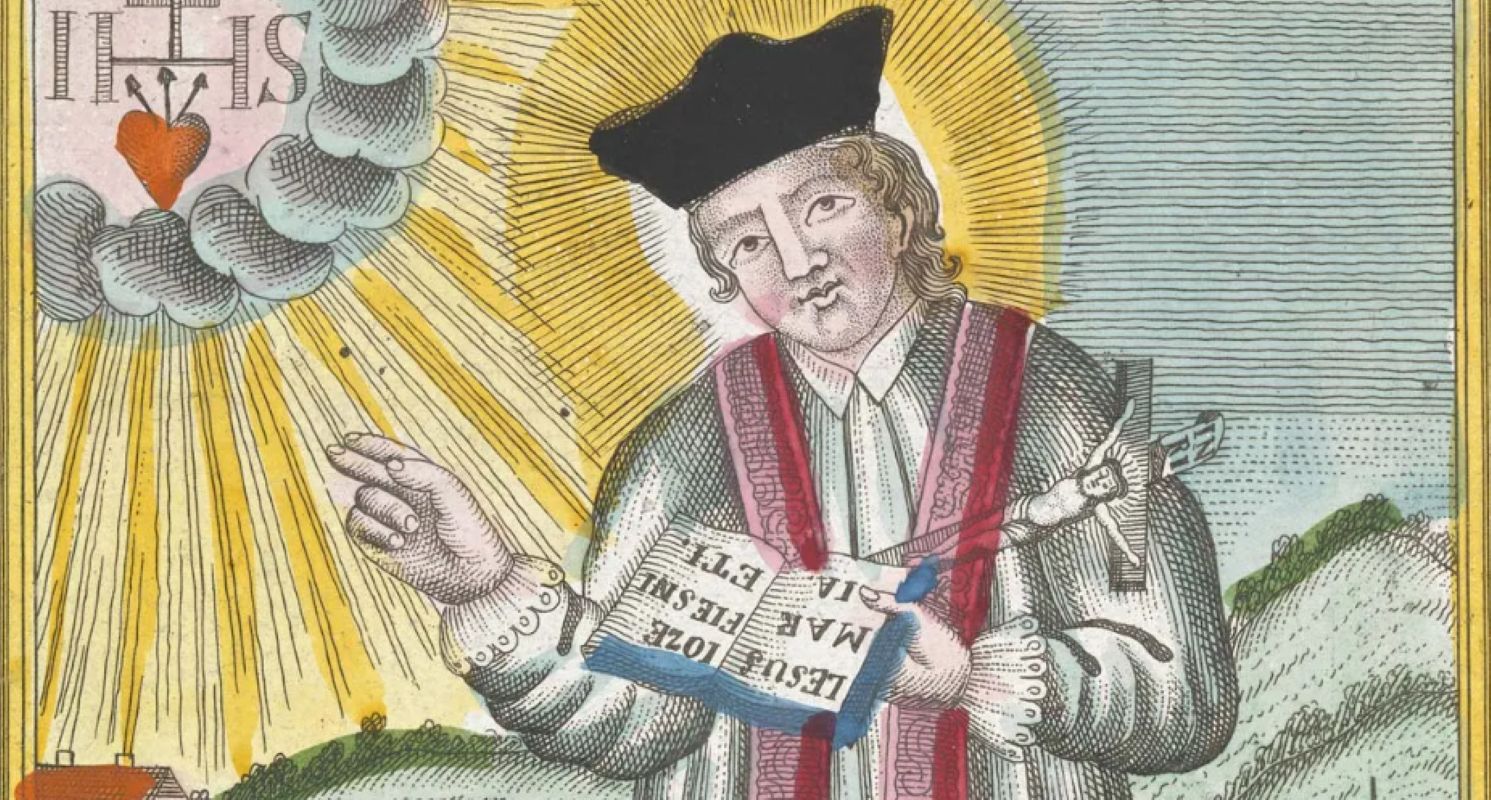 IHS
IESUS
MAR
IA
IOZE
FIESNI
ETI